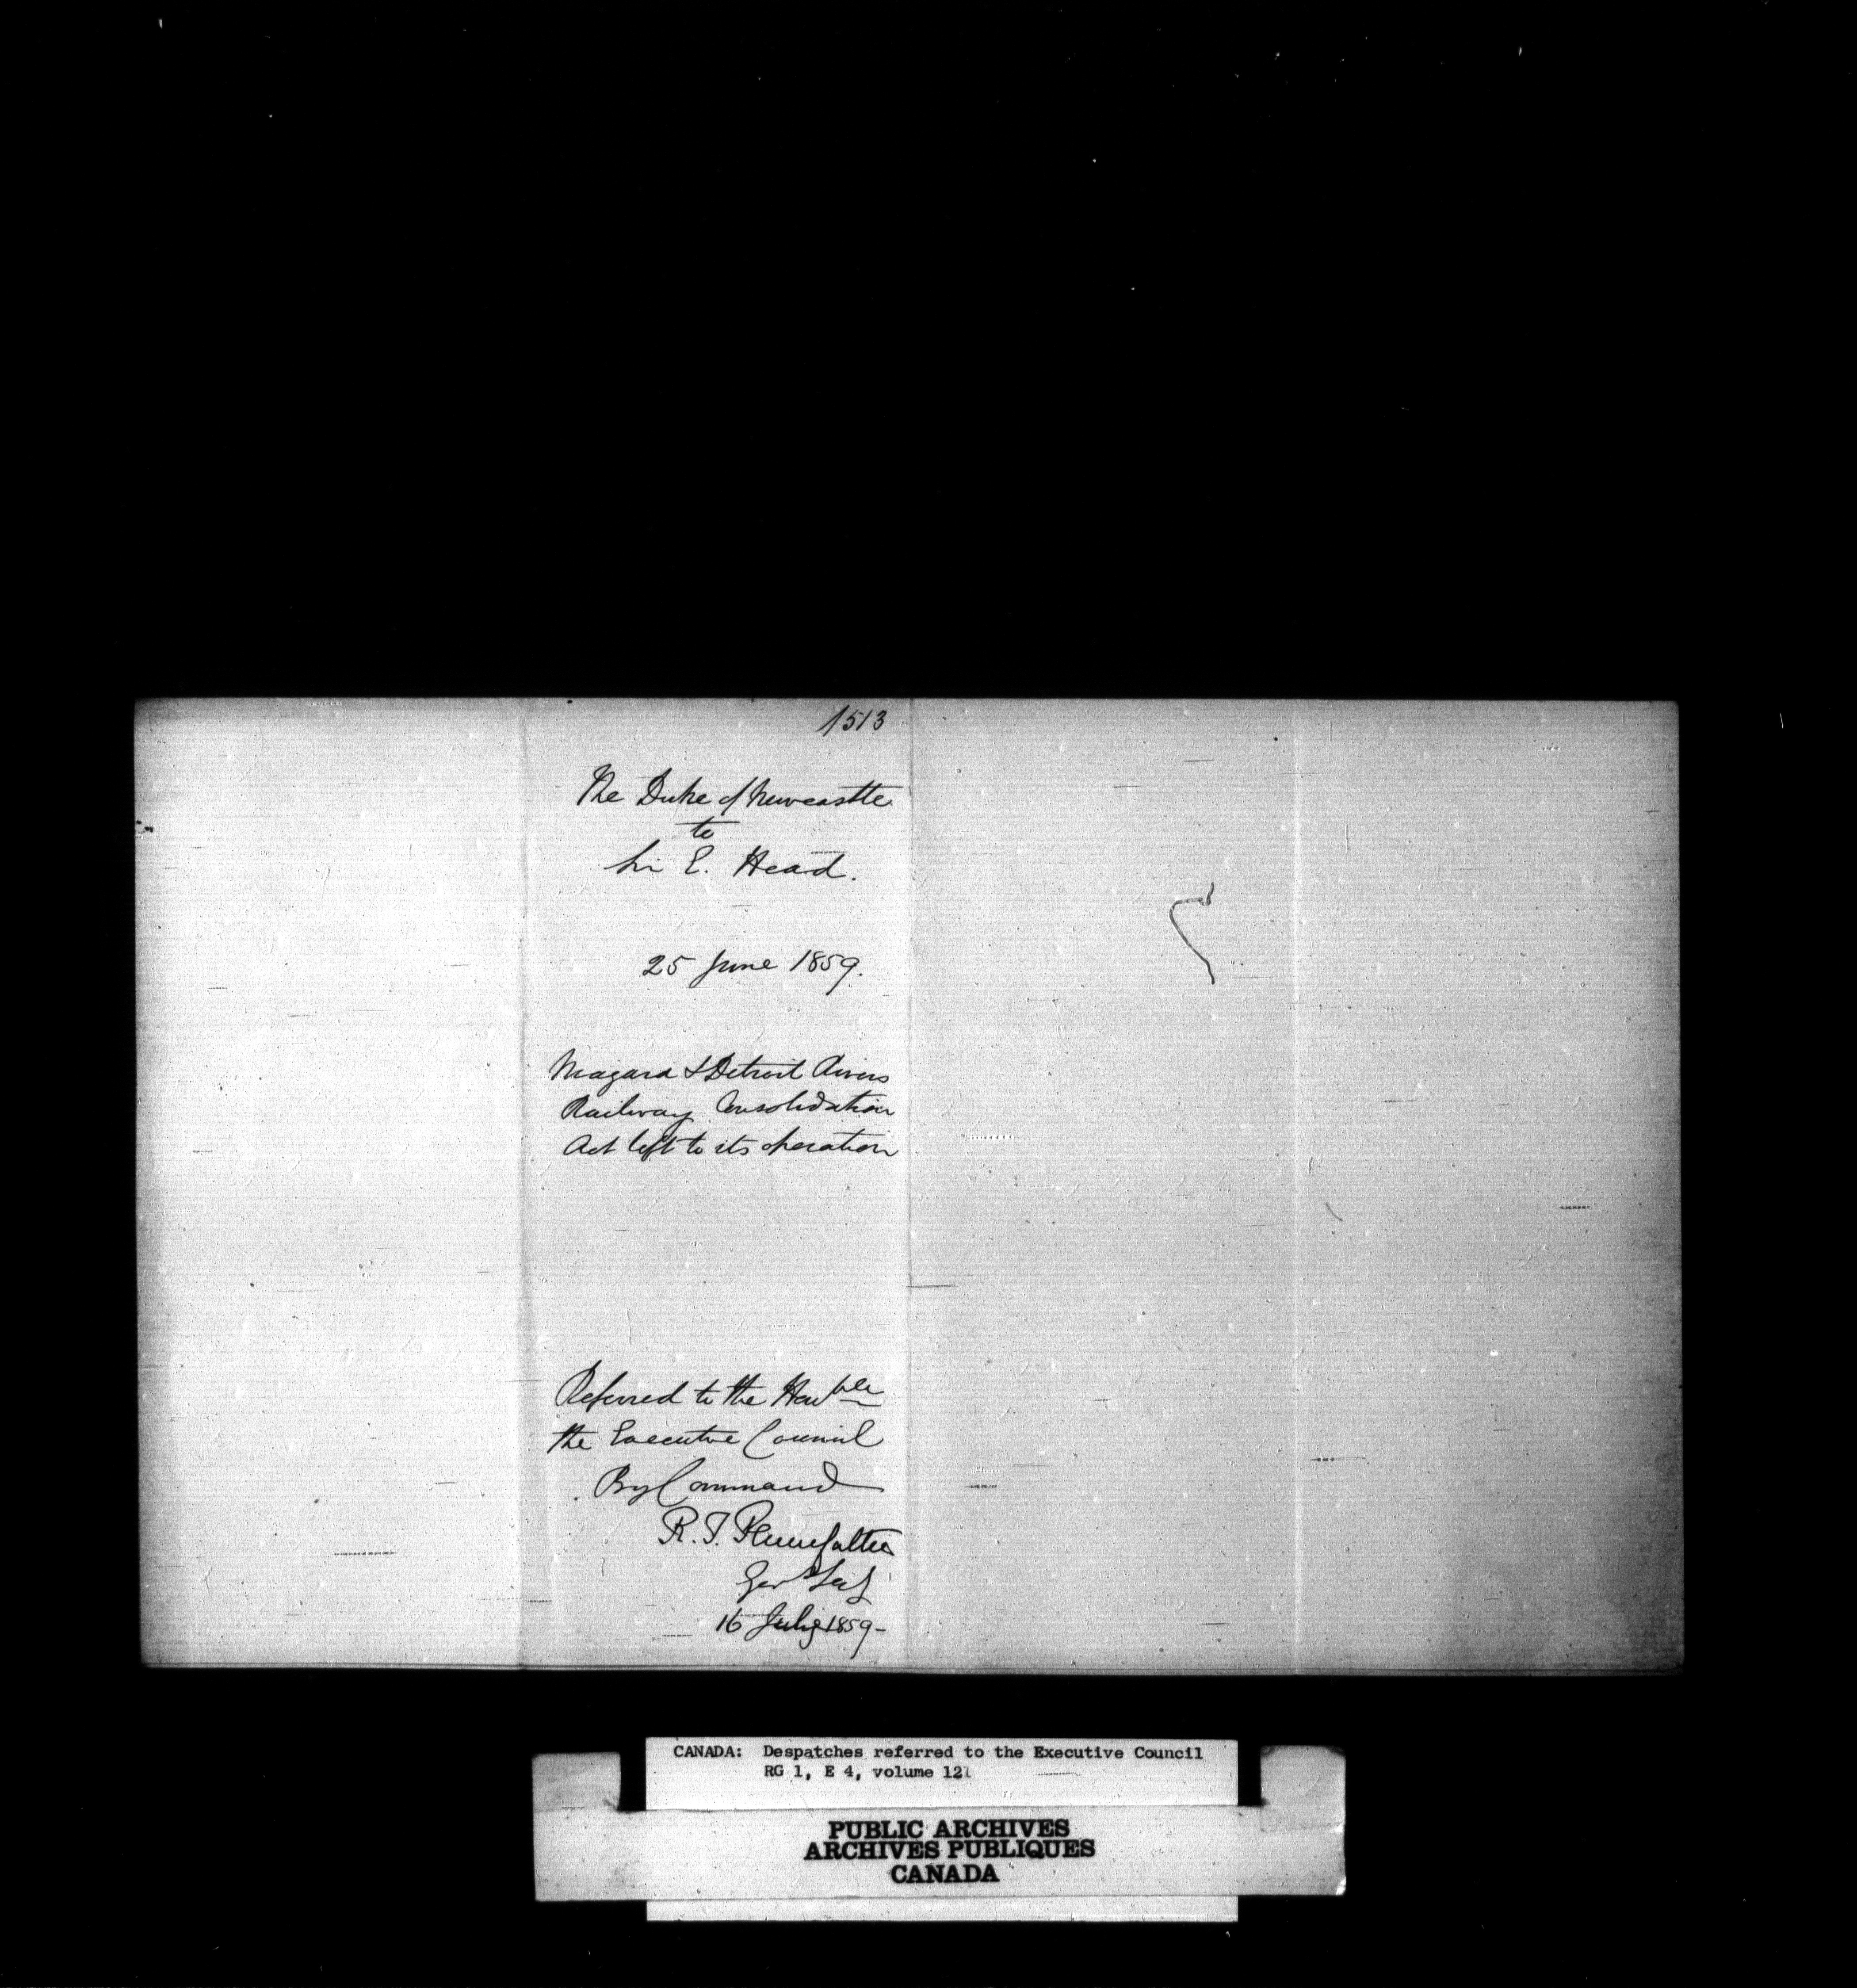 1513
The Duke of Newcastle
to
Sir E. Head.
25 June 1859.
Niagara & Detroit Rivers
Railway Consolidation
Act left to its operation
Referred to the Honble
the Executive Council
By Command
R. T. Pennefather
Gov Secy
16 July 1859-
CANADA: Despatches referred to the Executive Council
RG 1, E 4, volume 121
PUBLIC ARCHIVES
ARCHIVES PUBLIQUES
CANADA